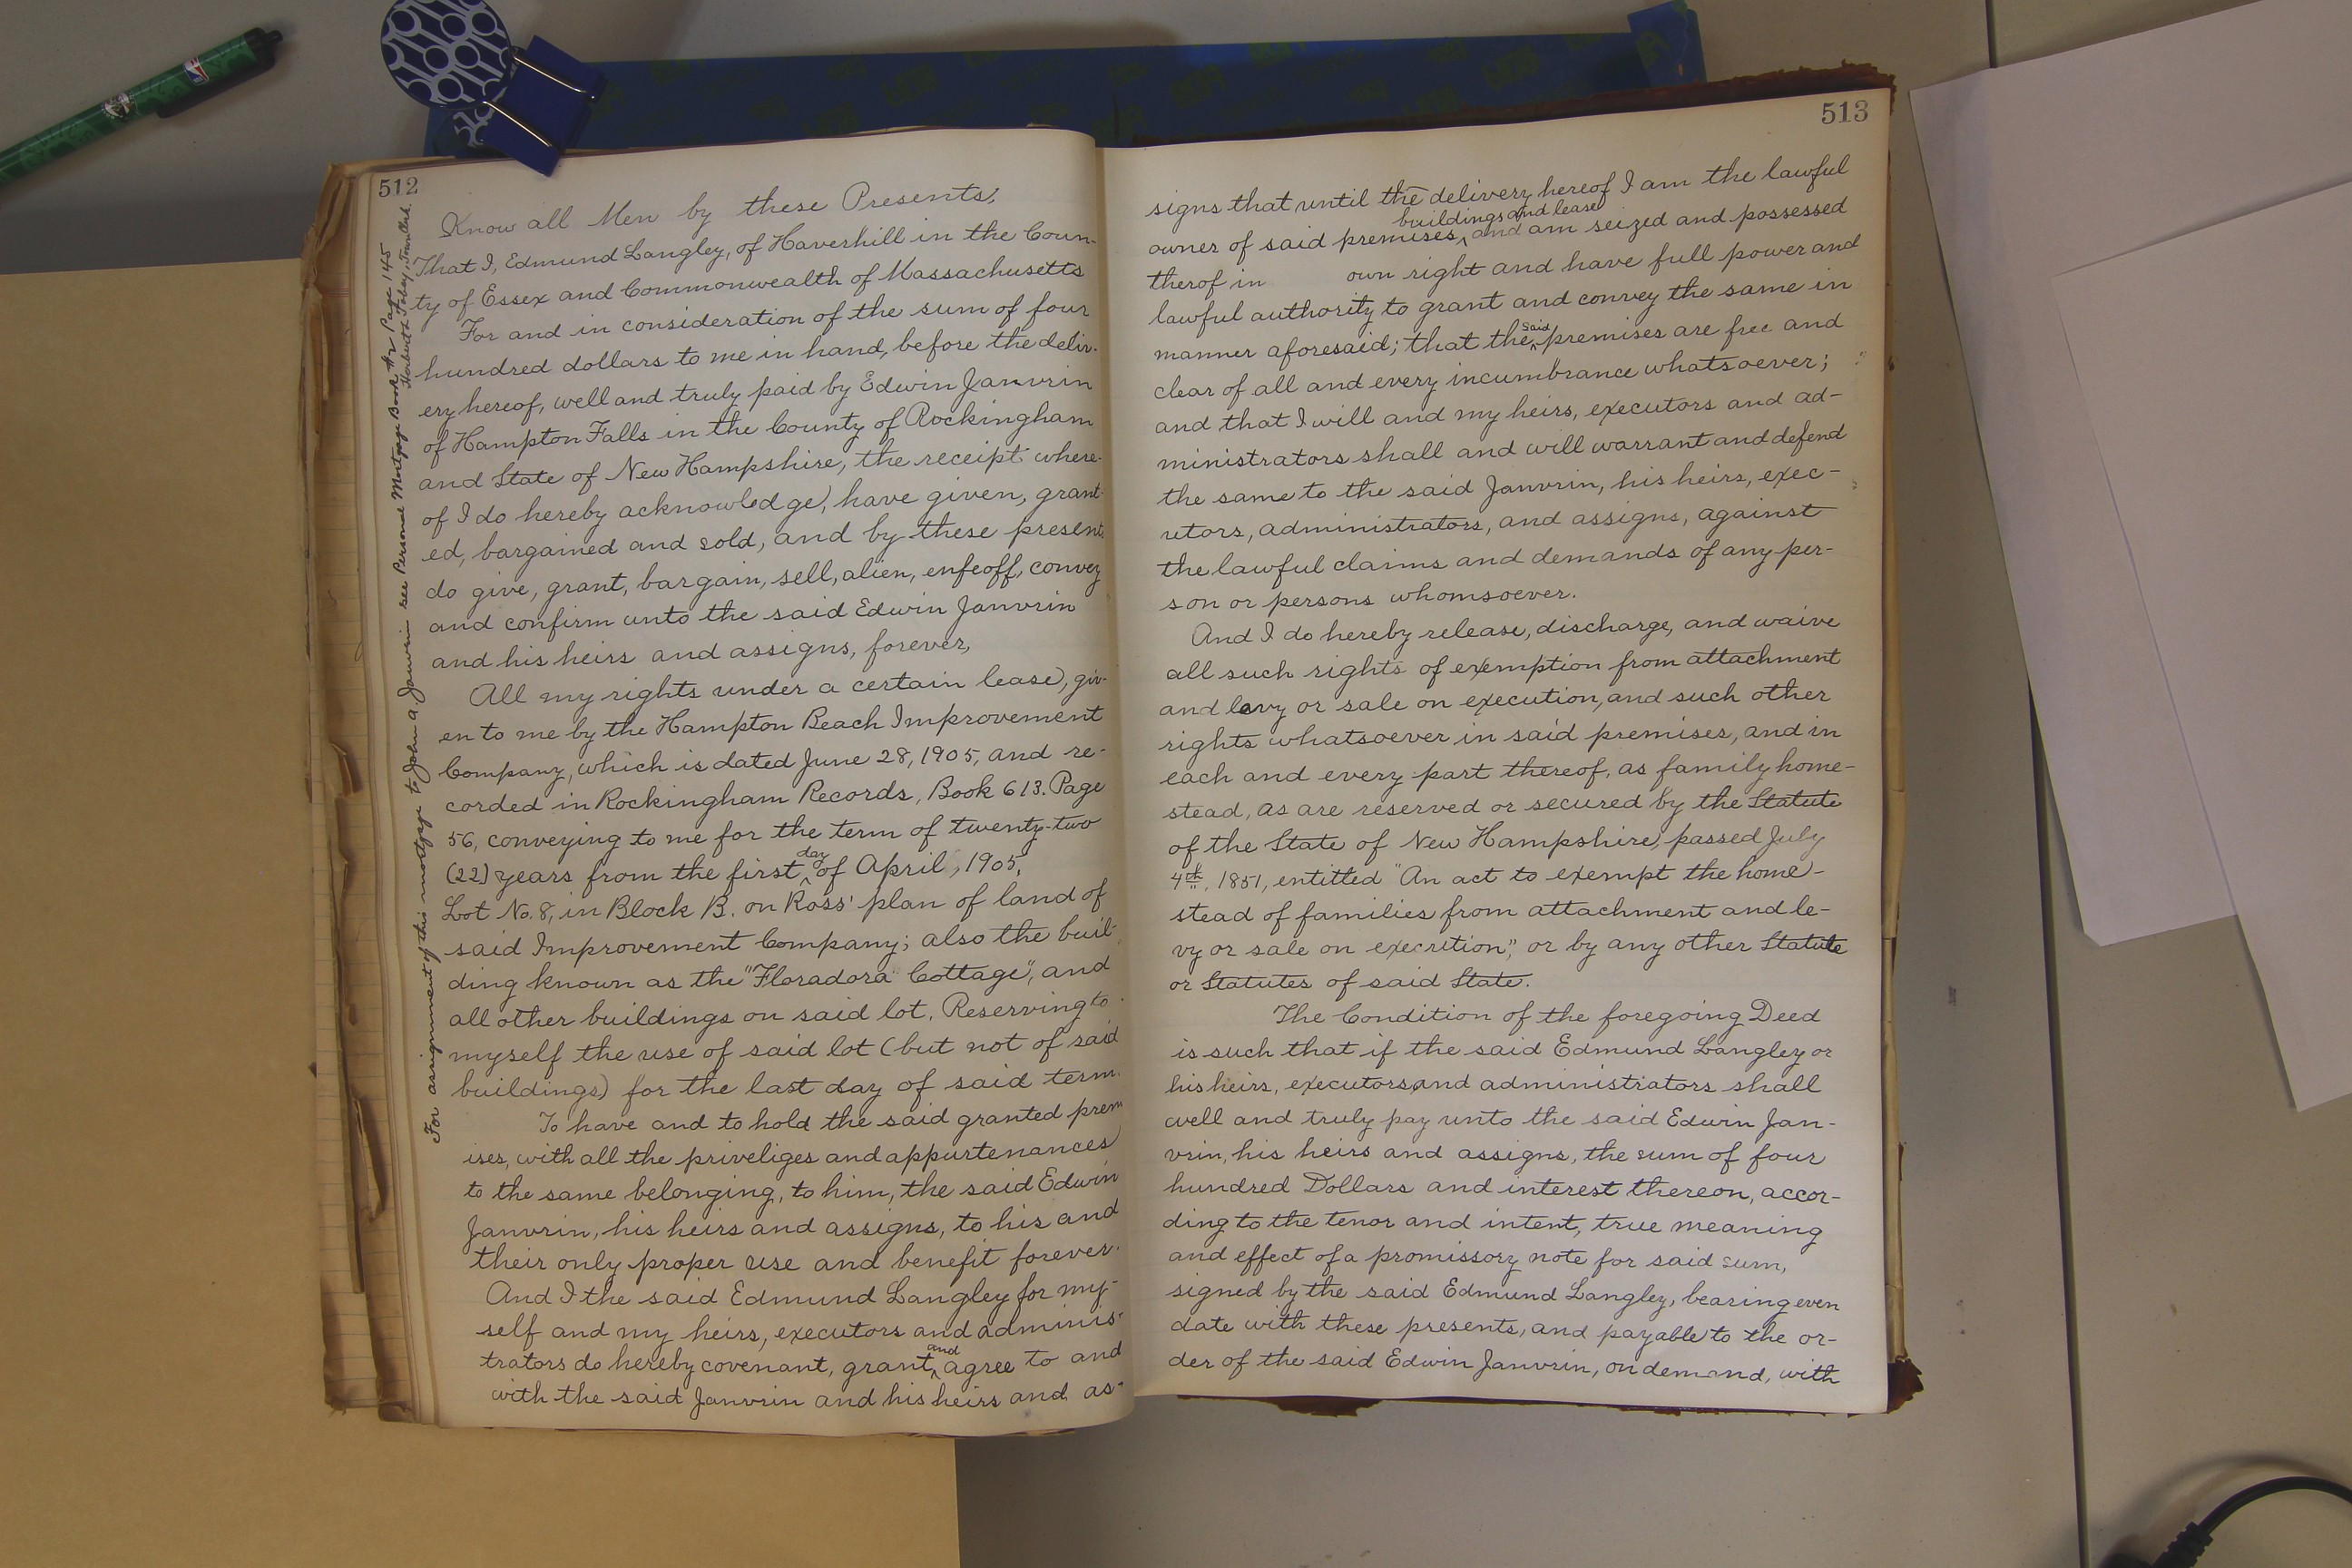 512
Know all Men by these Presents,
That I, Edmund Langley, of Haverhill in the Coun-
ty of Essex and Commonwealth of Massachusetts
For and in consideration of the sum of four
hundred dollars to me in hand, before the deliv-
ery hereof, well and truly paid by Edwin Janvrin
of Hampton Falls in the County of Rockingham
and State of New Hampshire, the receipt where-
of I do hereby acknowledge, have given, grant-
ed, bargained and sold, and by these presents
do give, grant, bargain, sell, alien, enfeoff, convey
and confirm unto the said Edwin Janvrin
and his heirs and assigns, forever,
All my rights under a certain lease, giv-
en to me by the Hampton Beach Improvement
Company, which is dated June 28, 1905, and re-
corded in Rockingham Records, Book 613. Page
56, conveying to me for the term of twenty-two
(22) years from the first day of April, 1905,
Lot No. 8, in Block B. on Ross' plan of land of
said Improvement Company; also the buil-
ding known as the "Floradora Cottage", and
all other buildings on said lot. Reserving to
myself the use of said lot (but not of said
buildings) for the last day of said term.
To have and to hold the said granted prem
ises, with all the priveliges and appurtenances
to the same belonging, to him, the said Edwin
Janvrin, his heirs and assigns, to his and
their only proper use and benefit forever.
And I the said Edmund Langley for my-
self and my heirs, executors and adminis-
trators do hereby covenant, grant, and agree to and
with the said Janvrin and his heirs and as-
For assignment of this mortgage to John A. Janvrin see Personal Mortgage Book Page 145
513
signs that until the delivery hereof I am the lawful
owner of said premises, buildings and lease and am seized and possessed
therof in own right and have full power and
lawful authority to grant and convey the same in
manner aforesaid; that the said premises are free and
clear of all and every incumbrance whatsoever;
and that I will and my heirs, executors and ad-
ministrators shall and will warrant and defend
the same to the said Janvrin, his heirs, exec-
utors, administrators, and assigns, against
the lawful claims and demands of any per-
son or persons whomsoever.
And I do hereby release, discharge, and waive
all such rights of exemption from attachment
and levy or sale on execution, and such other
rights whatsoever in said premises, and in
each and every part thereof, as family home-
stead, as are reserved or secured by the Statute
of the State of New Hampshire, passed July
4th, 1851, entitled "An act to exempt the home-
stead of families from attachment and le-
vy or sale on execution", or by any other Statute
or Statutes of said State.
The Condition of the foregoing Deed
is such that if the said Edmund Langley or
his heirs, executors, and administrators shall
well and truly pay unto the said Edwin Jan-
vrin, his heirs and assigns, the sum of four
hundred Dollars and interest thereon, accor-
ding to the tenor and intent, true meaning
and effect of a promissory note for said sum,
signed by the said Edmund Langley, bearing even
date with these presents, and payable to the or-
der of the said Edwin Janvrin, on demand, with